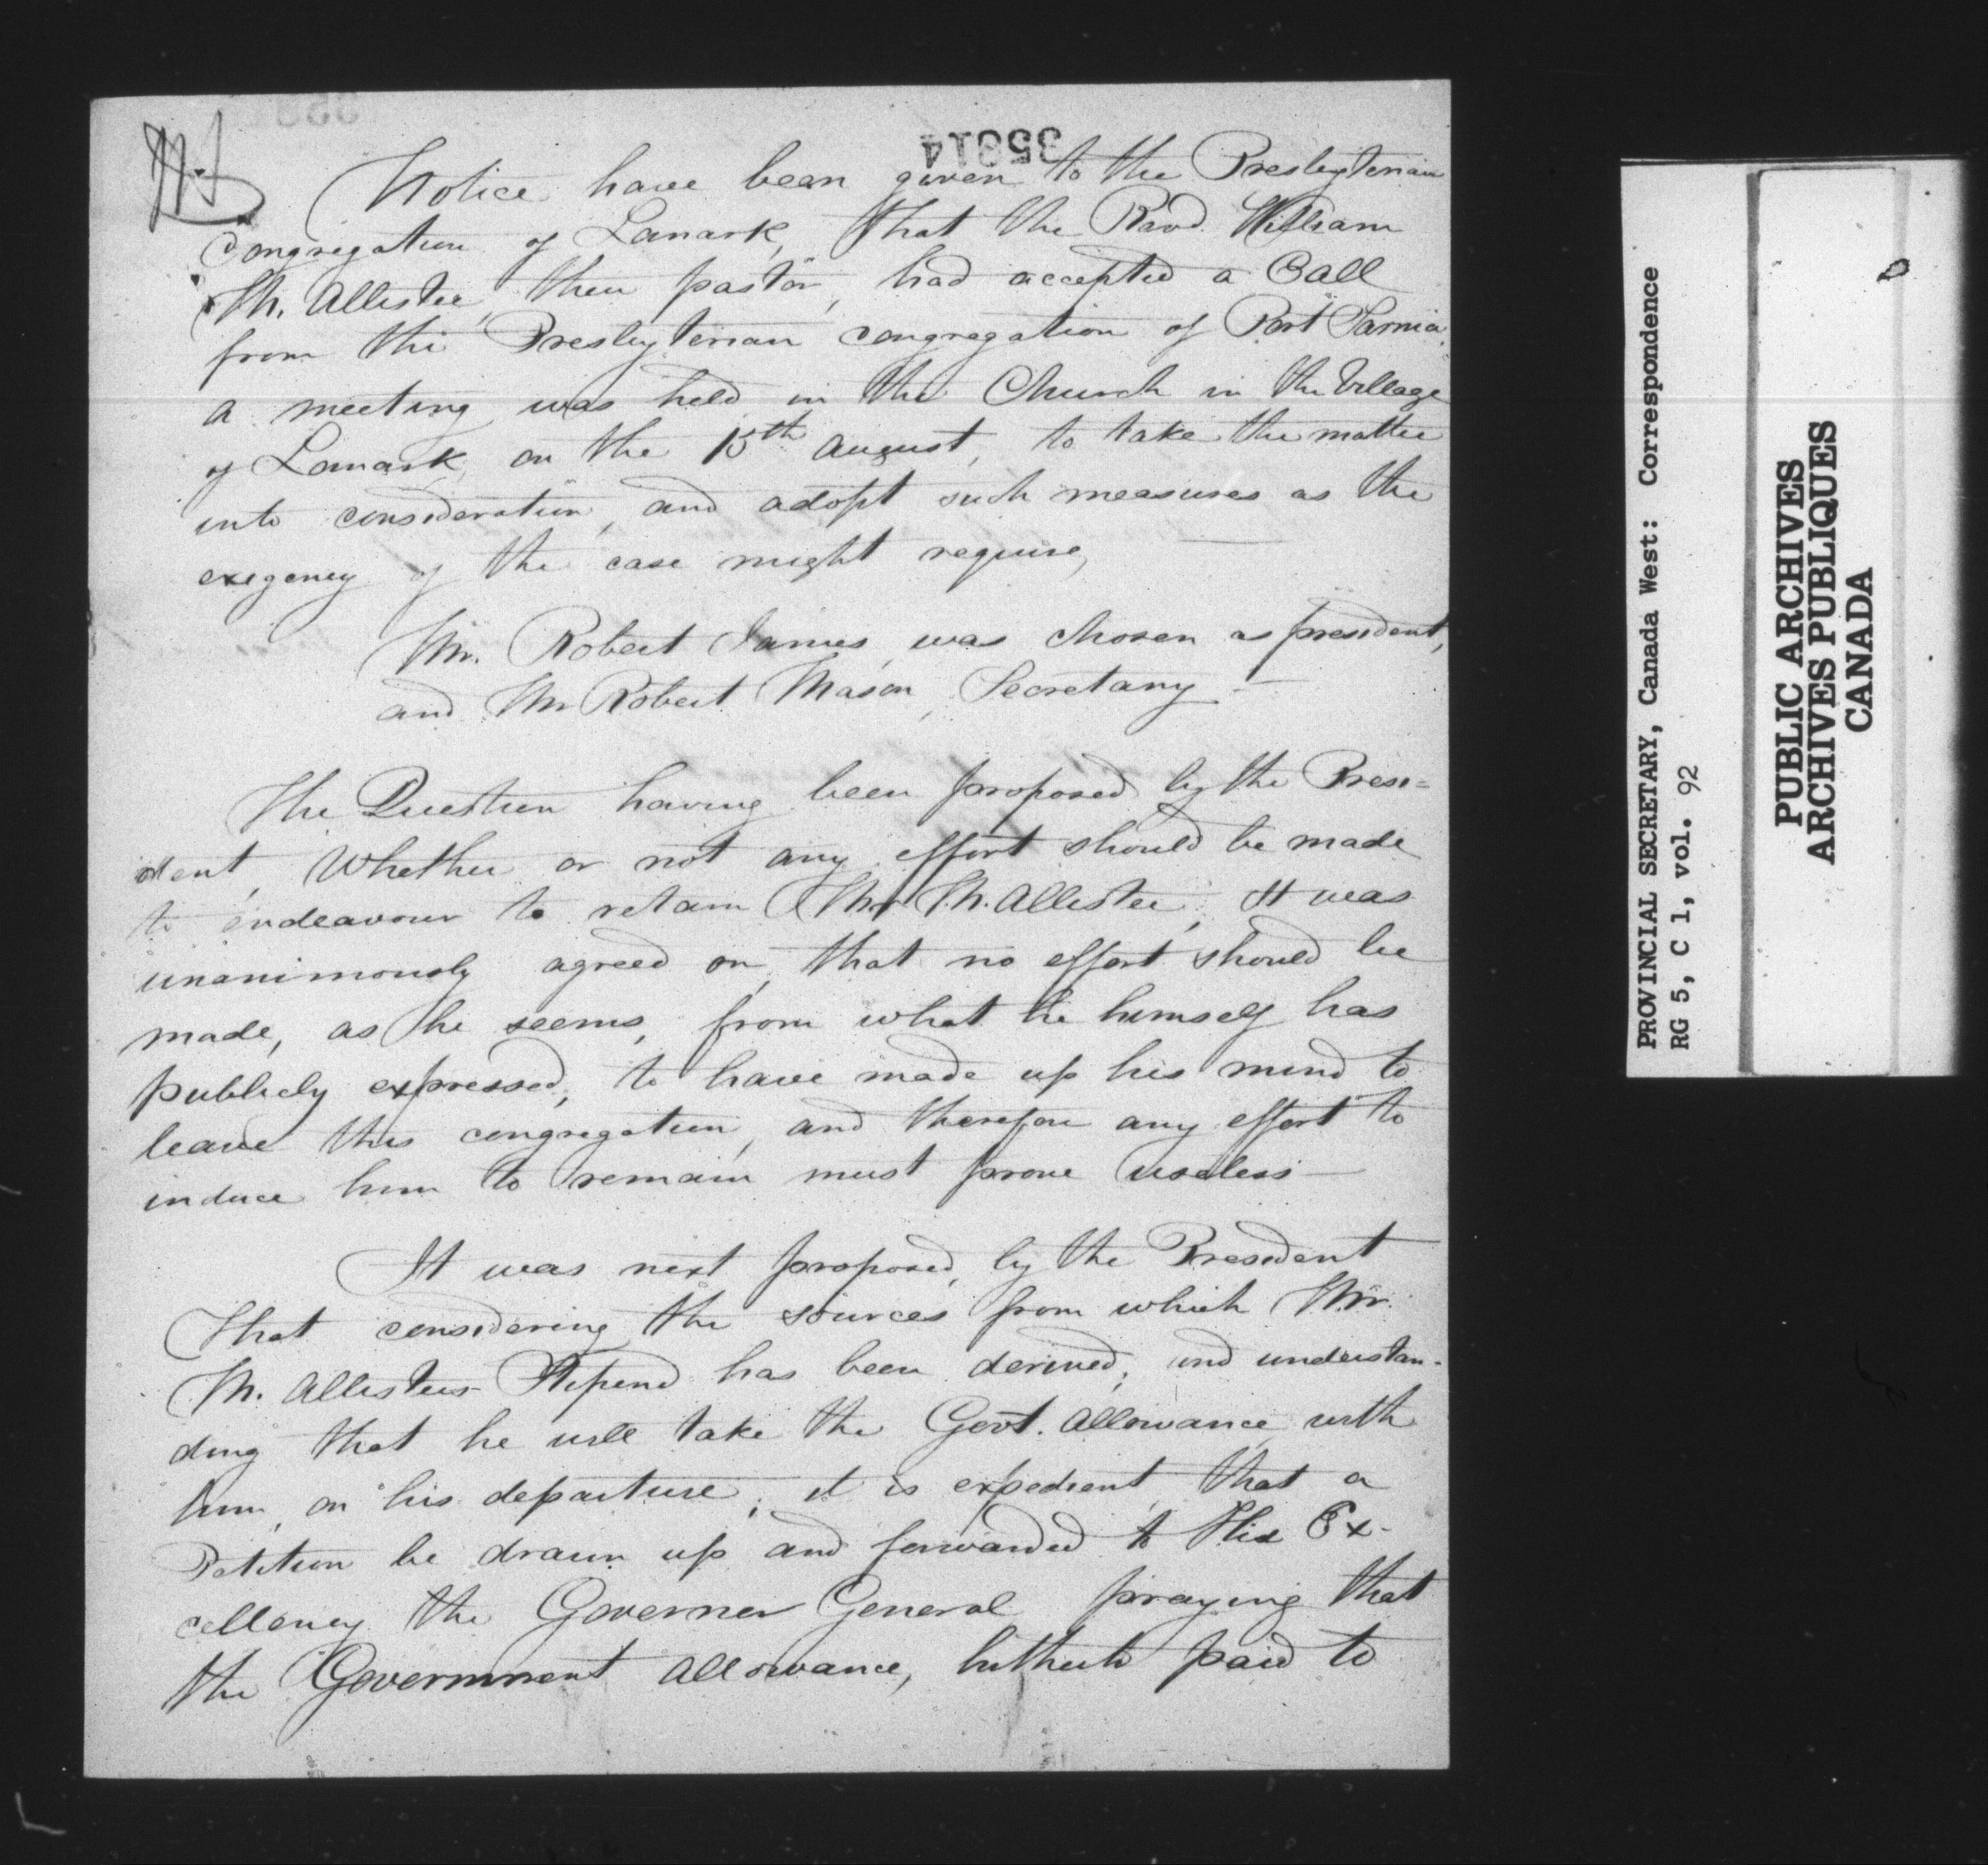 35814
Notice have been given to the Presbyterian
Congregation of Lanark, that the Revd. William
McAllister, their pastor, had accepted a Call
from the Presbyterian congregation of Port Sarnia.
a meeting was held in the Church in the Village
of Lanark, on the 15th August, to take the matter
into consideration, and adopt such measures as the
exegency of the case might require,
Mr. Robert James, was chosen as president,
and Mr Robert Mason, Secretary —
The Question having been proposed by the Presi=
dent, Whether or not any effort should be made
to endeavour to retain Mr McAllister, It was
unanimously agreed on, that no effort should be
made, as he seems, from what he himself has
publicly expressed, to have made up his mind to
leave this congregation, and therefore any effort to
induce him to remain must prove useless —
It was next proposed, by the President
That considering the sources from which Mr.
McAllisters Stipend has been derived, and understan-
ding that he will take the Govt. Allowance with
him, on his departure, it is expedient, that a
Petition be drawn up and forwarded to His Ex-
cellency the Governor General praying that
the Government Allowance, hitherto paid to
PROVINCIAL SECRETARY, Canada West: Correspondence
RG 5, C 1, vol. 92
PUBLIC ARCHIVES
ARCHIVES PUBLIQUES
CANADA